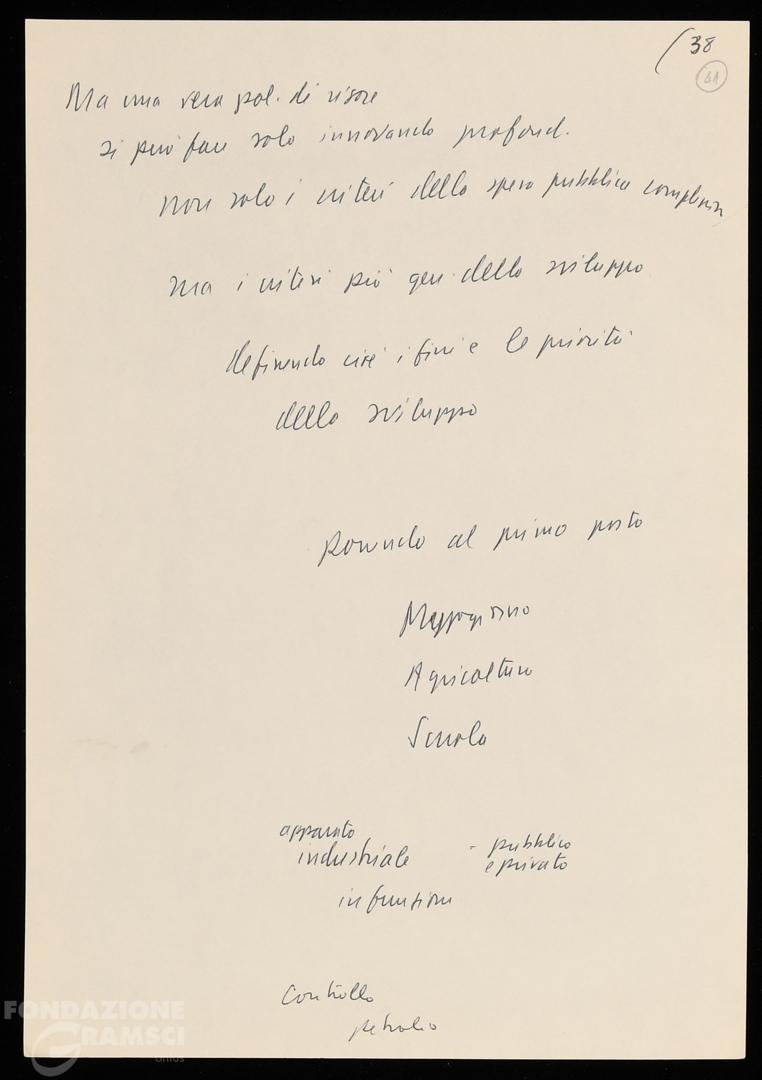 (38
41
Ma una vera pol. di rigore
si può fare solo innovando profond.
non solo i criteri della spesa pubblica
ma i criteri più gen. dello sviluppo
definendo cioè i fini e le priorità
dello sviluppo
Ponendo al primo posto
Mezzogiorno
Agricoltura
Scuola
apparato
industriale - pubblico
e privato
in funzione
Controllo
petrolio
FONDAZIONE
GRAMSCI
onlus